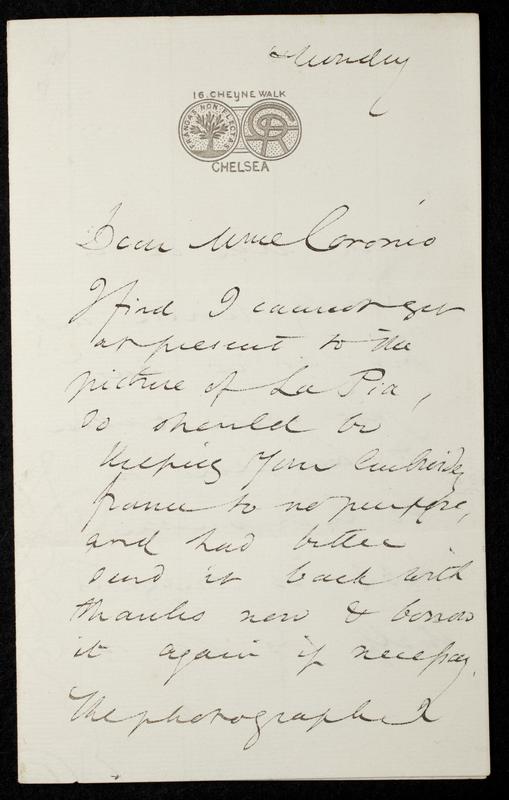 Monday
16. CHEYNE WALK
FRANGAS NON FLECTAS
CHELSEA
Dear Mme Coronio
I find I cannot get
at present to the
picture of La Pia,
so should be
keeping your embroidery
frame to no purpose,
and had better
send it back with
thanks now & borrow
it again if necessary.
The photographed